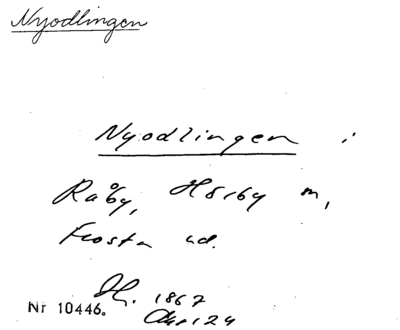 Nyodlingen
Nyodlingen i
Råby, Hörby m,
Frosta hd.
Jk. 1867
Nr 10446.
24